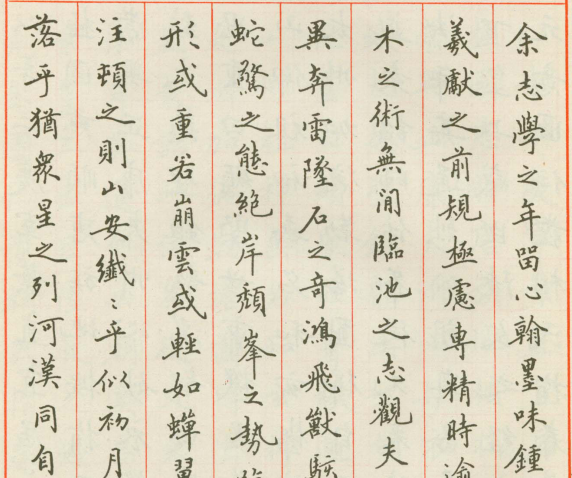 余志學之年畱心翰墨味鍾
羲獻之前規極慮專精時逾
木之術無閒臨池之志觀夫
異奔雷墜石之奇鴻飛獸駭
蛇驚之態絕岸頹峯之勢
形或重若崩雲或輕如蟬翼
注頓之則山安纖〻乎似初月
落乎猶眾星之列河漢同自